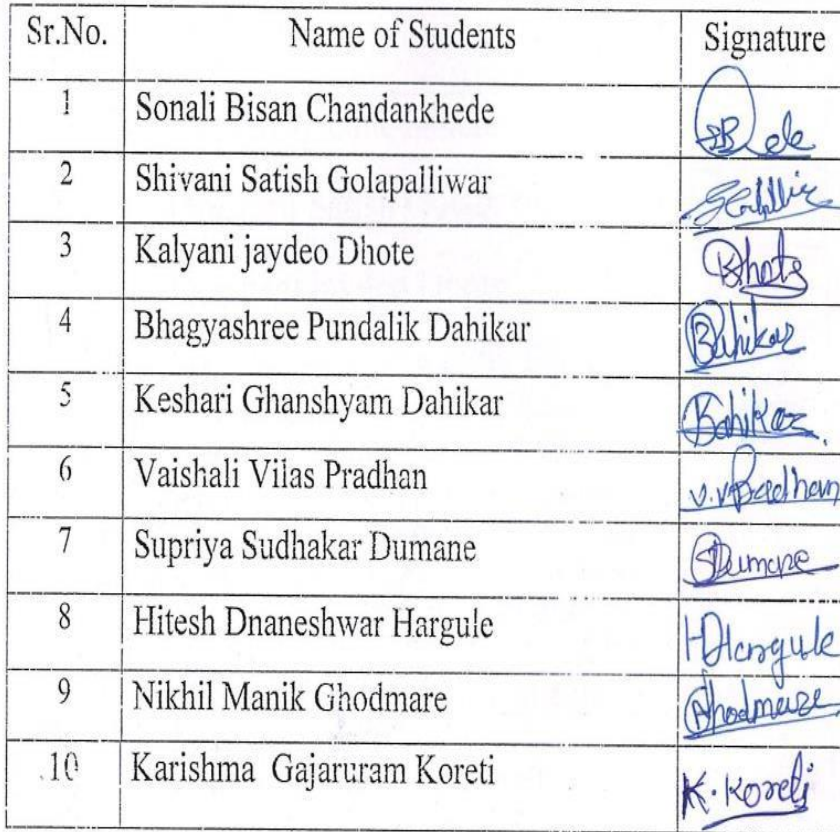 Sr.No. Name of Students Signature
1 Sonali Bisan Chandankhede
2 Shivani Satish Golapalliwar
3 Kalyani jaydeo Dhote Dhote
4 Bhagyashree Pundalik Dahikar Dahikar
5 Keshari Ghanshyam Dahikar Dahikar
6 Vaishali Vilas Pradhan v.v Pradhan
7 Supriya Sudhakar Dumane Dumane
8 Hitesh Dnaneshwar Hargule Hargule
9 Nikhil Manik Ghodmare Ghodmare
10 Karishma Gajaruram Koreti K. Koreti